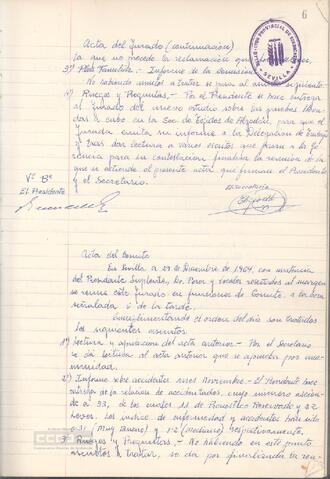 6
DELEGACION PROVINCIAL DE SINDICATOS
SEVILLA
Acta del Jurado (continuación)
la que no procede la reclamación que
3º) Plus Familiar.- Informe de la Comisión.-
No habiendo asuntos a tratar se pasa al asunto siguiente.-
4º) Ruegos y Preguntas.- Por el Presidente se hace entrega
al Jurado del nuevo estudio sobre las pruebas lleva-
das a cabo en la Sec. de Tejidos de Algodón, para que el
Jurado emita su informe a la Delegación de Trabajo
y tras dar lectura a varios escritos que pasan a la Ge-
rencia para su contestación, finaliza la reunión de la
que se extiende el presente acta, que firman el Presidente
y el Secretario.
Vº Bº
El Presidente
El Secretario
Acta del Comite
En Sevilla a 29 de Diciembre de 1964, con asistencia
del Presidente Suplente, y vocales reseñados al margen
se reune este Jurado en funciones de Comité a la hora
señalada 6 de la tarde.
Cumplimentando el orden del día son tratados
los siguientes asuntos:
1º) Lectura y aprobación del acta anterior.- Por el Secretario
se da lectura al acta anterior que se aprueba por una-
nimidad.
2º) Informe sobre accidentes mes Noviembre.- El Presidente hace
entrega de la relación de accidentados, cuyo número ascien-
de a 33, de los cuales 11 de Pronóstico Reservado y 22
Leves. Los índices de enfermedad y accidentes han sido
0.31 (Muy Bueno) y 1.2 (Mediano) respectivamente.
3º) Ruegos y Preguntas.- No habiendo en este punto
asuntos a tratar, se da por finalizada la reu-